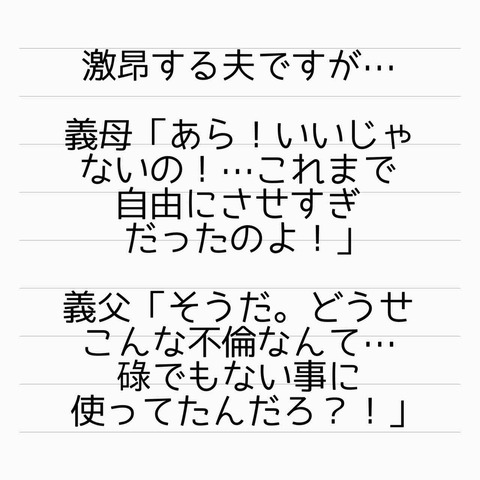 激昂する夫ですが…
義母「あら！いいじゃ
ないの！…これまで
自由にさせすぎ
だったのよ！」
義父「そうだ。どうせ
こんな不倫なんて…
碌でもない事に
使ってたんだろ？！」